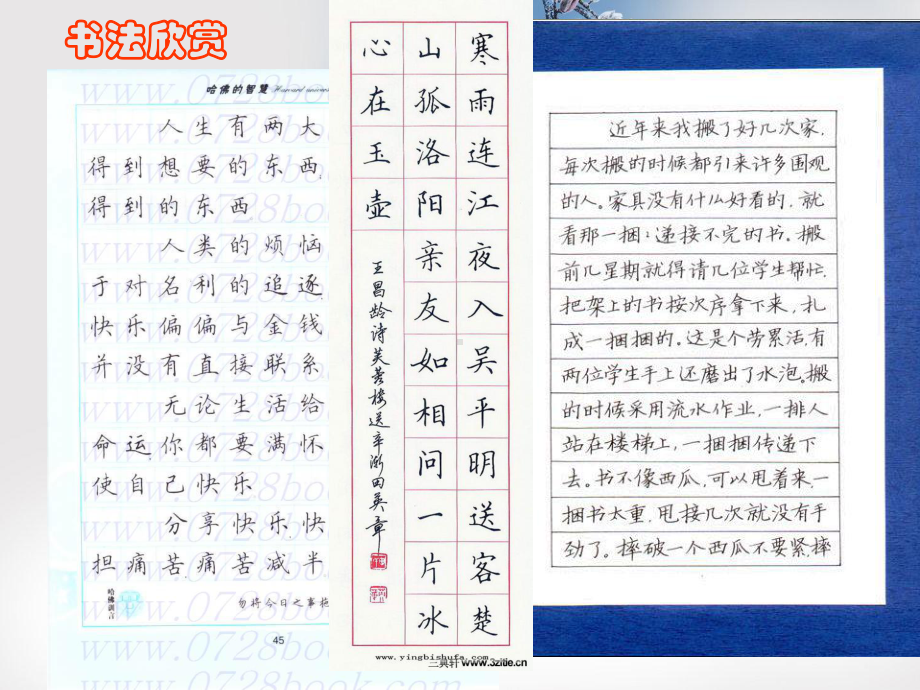 书法欣赏
哈佛的智慧
人生有两大
得到想要的东西,
得到的东西
人类的烦恼
于对名利的追逐
快乐偏偏与金钱
并没有直接联系
无论生活给
命运,你都要满怀
使自己快乐
分享快乐,快
担痛苦,痛苦减半
哈佛训言
勿将今日之事拖
45
www.0728book.com
寒雨连江夜入吴平明送客楚
山孤洛阳亲友如相问一片冰
心在玉壶
王昌龄诗芙蓉楼送辛渐田英章
www.yingbishufa.com
三典轩 www.3zitie.cn
近年来我搬了好几次家,
每次搬的时候都引来许多围观
的人。家具没有什么好看的,就
看那一捆:递接不完的书。搬
前几星期就得请几位学生帮忙,
把架上的书按次序拿下来,扎
成一捆捆的。这是个劳累活,有
两位学生手上还磨出了水泡。搬
的时候采用流水作业,一排人
站在楼梯上,一捆捆传递下
去。书不像西瓜,可以甩着来,一
捆书太重,甩接几次就没有手
劲了。摔破一个西瓜不要紧,摔